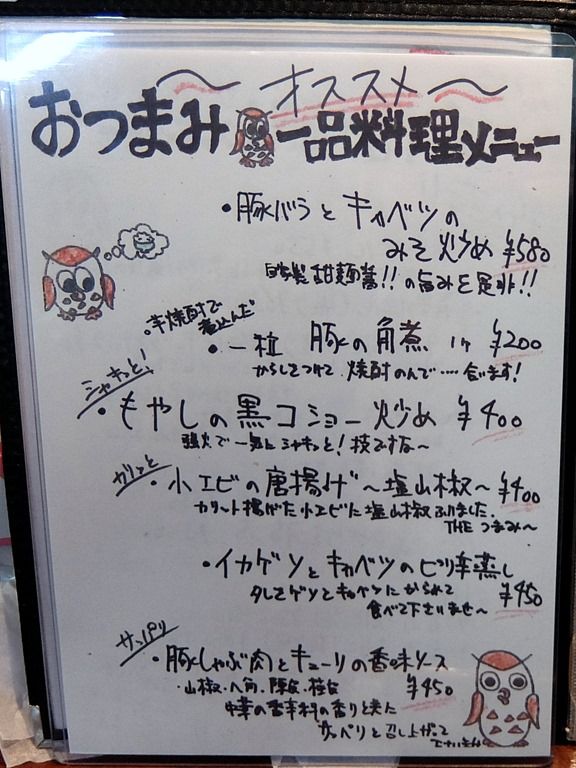 〜オススメ〜
おつまみ一品料理メニュー
・豚バラとキャベツの
みそ炒め ¥580
自家製甜麺醤!!の旨みを是非!!
・芋焼酎で
煮込んだ
・一粒 豚の角煮 1ヶ ¥200
からしつけて、焼酎のんで‥‥合います!
シャキッと!
・もやしの黒コショー炒め ¥400
強火で一気にシャキッと!技ですな〜
カリッと
・小エビの唐揚げ〜塩山椒〜 ¥400
カリット揚げた小エビに塩山椒ふりました。
THE つまみ〜
・イカゲソとキャベツのピリ辛蒸し
¥450
食べて下さいませ〜
サッパリ
・豚しゃぶ肉とキューリの香味ソース
・山椒・八角・陳皮・桂皮 ¥450
中華の香辛料の香りと共に
サッパリと召し上がって